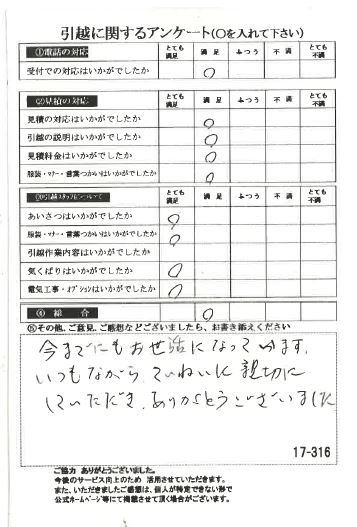 引越に関するアンケート(○を入れて下さい)
①電話の対応 とても満足 満足 ふつう 不満 とても不満
受付での対応はいかがでしたか ○
②見積の対応 とても満足 満足 ふつう 不満 とても不満
見積の対応はいかがでしたか ○
引越の説明はいかがでしたか ○
見積料金はいかがでしたか ○
服装・マナー・言葉つかいはいかがでしたか ○
③引越スタッフについて とても満足 満足 ふつう 不満 とても不満
あいさつはいかがでしたか ○
服装・マナー・言葉つかいはいかがでしたか ○
引越作業内容はいかがでしたか
気くばりはいかがでしたか ○
電気工事・オプションはいかがでしたか ○
④総合 ○
⑤その他、ご意見、ご感想などございましたら、お書き添えください
今までにもお世話になっています。
いつもながら、ていねいに親切に
していただき、ありがとうございました
17-316
ご協力 ありがとうございました。
今後のサービス向上のため 活用させていただきます。
また、いただきましたご感想は、個人が特定できない形で
公式ホームページ等にて掲載させて頂く場合がございます。